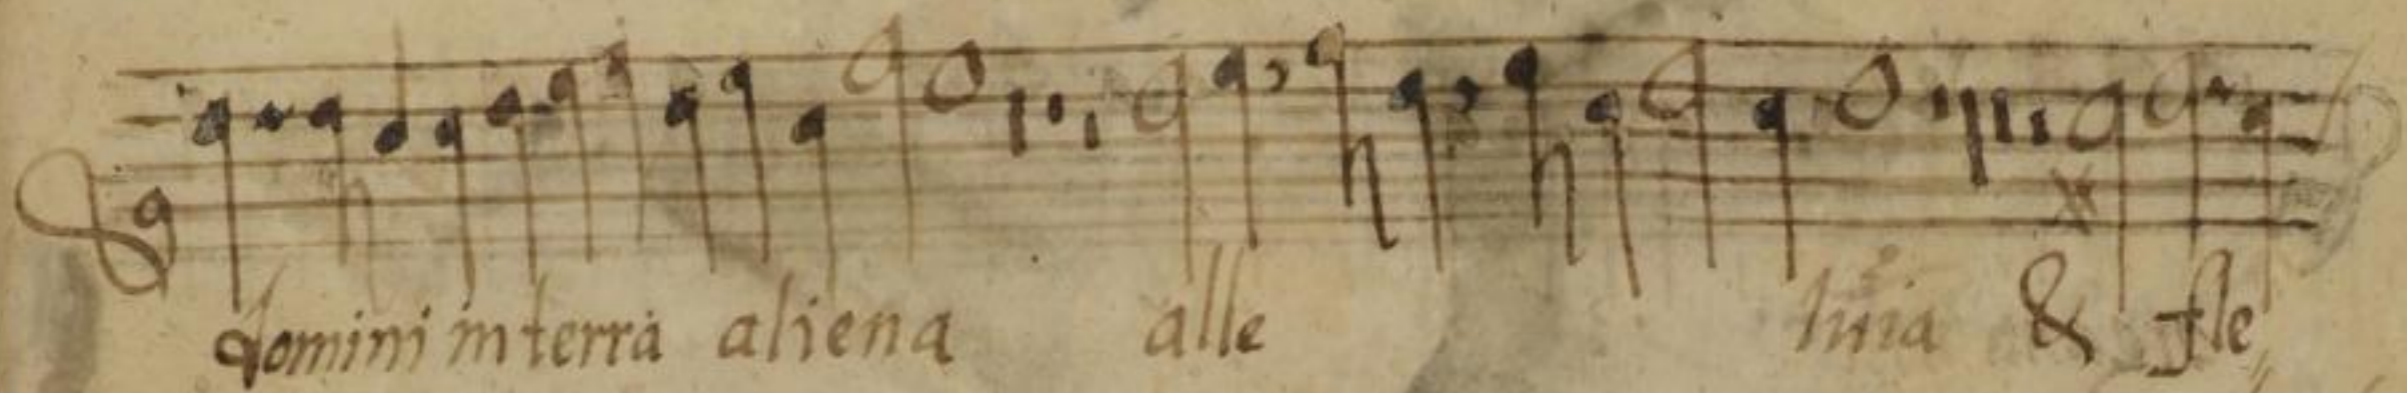 domini in terra aliena alle luia & fle